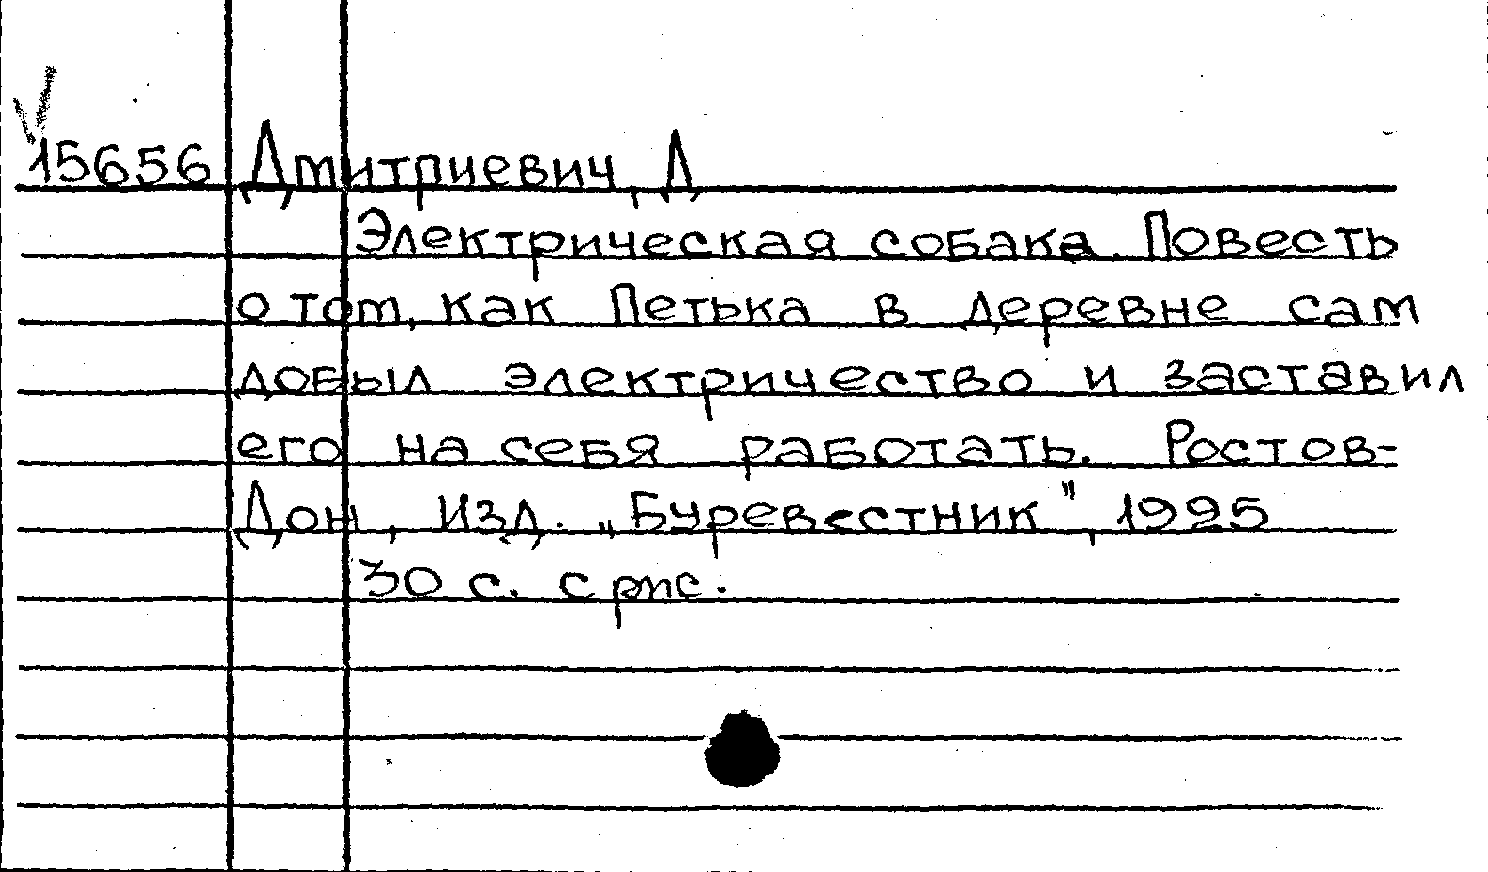 15656 Дмитриевич, Д
Электрическая собака. Повесть
о том, как Петька в деревне сам
добыл электричество и заставил
его на себя работать. Ростов-
Дон, Изд. „Буревестник", 1995
30 с. с рис.